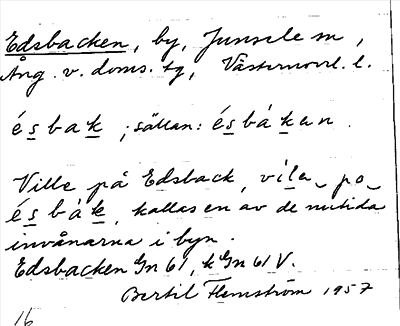 Edsbacken, by, Junsele sn,
Ång. v. doms. tg, Västernorrl. l.
é s b a k ; sällan: é s b á k e n .
Ville på Edsback, víla_ po_
é s b á k, kallas en av de nutida
invånarna i byn.
Edsbacken Gn 61, k Gn 61 V.
Bertil Flemström 1957
16